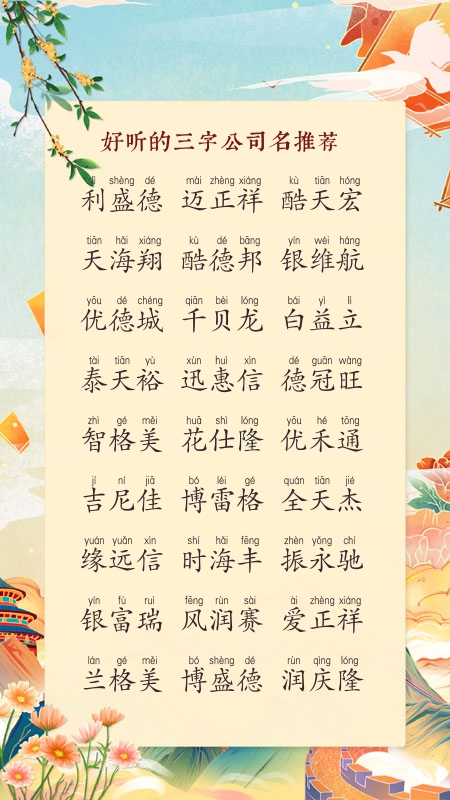 好听的三字公司名推荐
lì shèng dé mài zhèng xiáng kù tiān hóng
利盛德 迈正祥 酷天宏
tiān hǎi xiáng kù dé bāng yín wéi háng
天海翔 酷德邦 银维航
yōu dé chéng qiān bèi lóng bái yì lì
优德城 千贝龙 白益立
tài tiān yù xùn huì xìn dé guān wàng
泰天裕 迅惠信 德冠旺
zhì gé měi huā shì lóng yōu hé tōng
智格美 花仕隆 优禾通
jí ní jiā bó léi gé quán tiān jié
吉尼佳 博雷格 全天杰
yuán yuǎn xìn shí hǎi fēng zhèn yǒng chí
缘远信 时海丰 振永驰
yín fù ruì fēng rùn sài ài zhèng xiáng
银富瑞 风润赛 爱正祥
lán gé měi bó shèng dé rùn qìng lóng
兰格美 博盛德 润庆隆